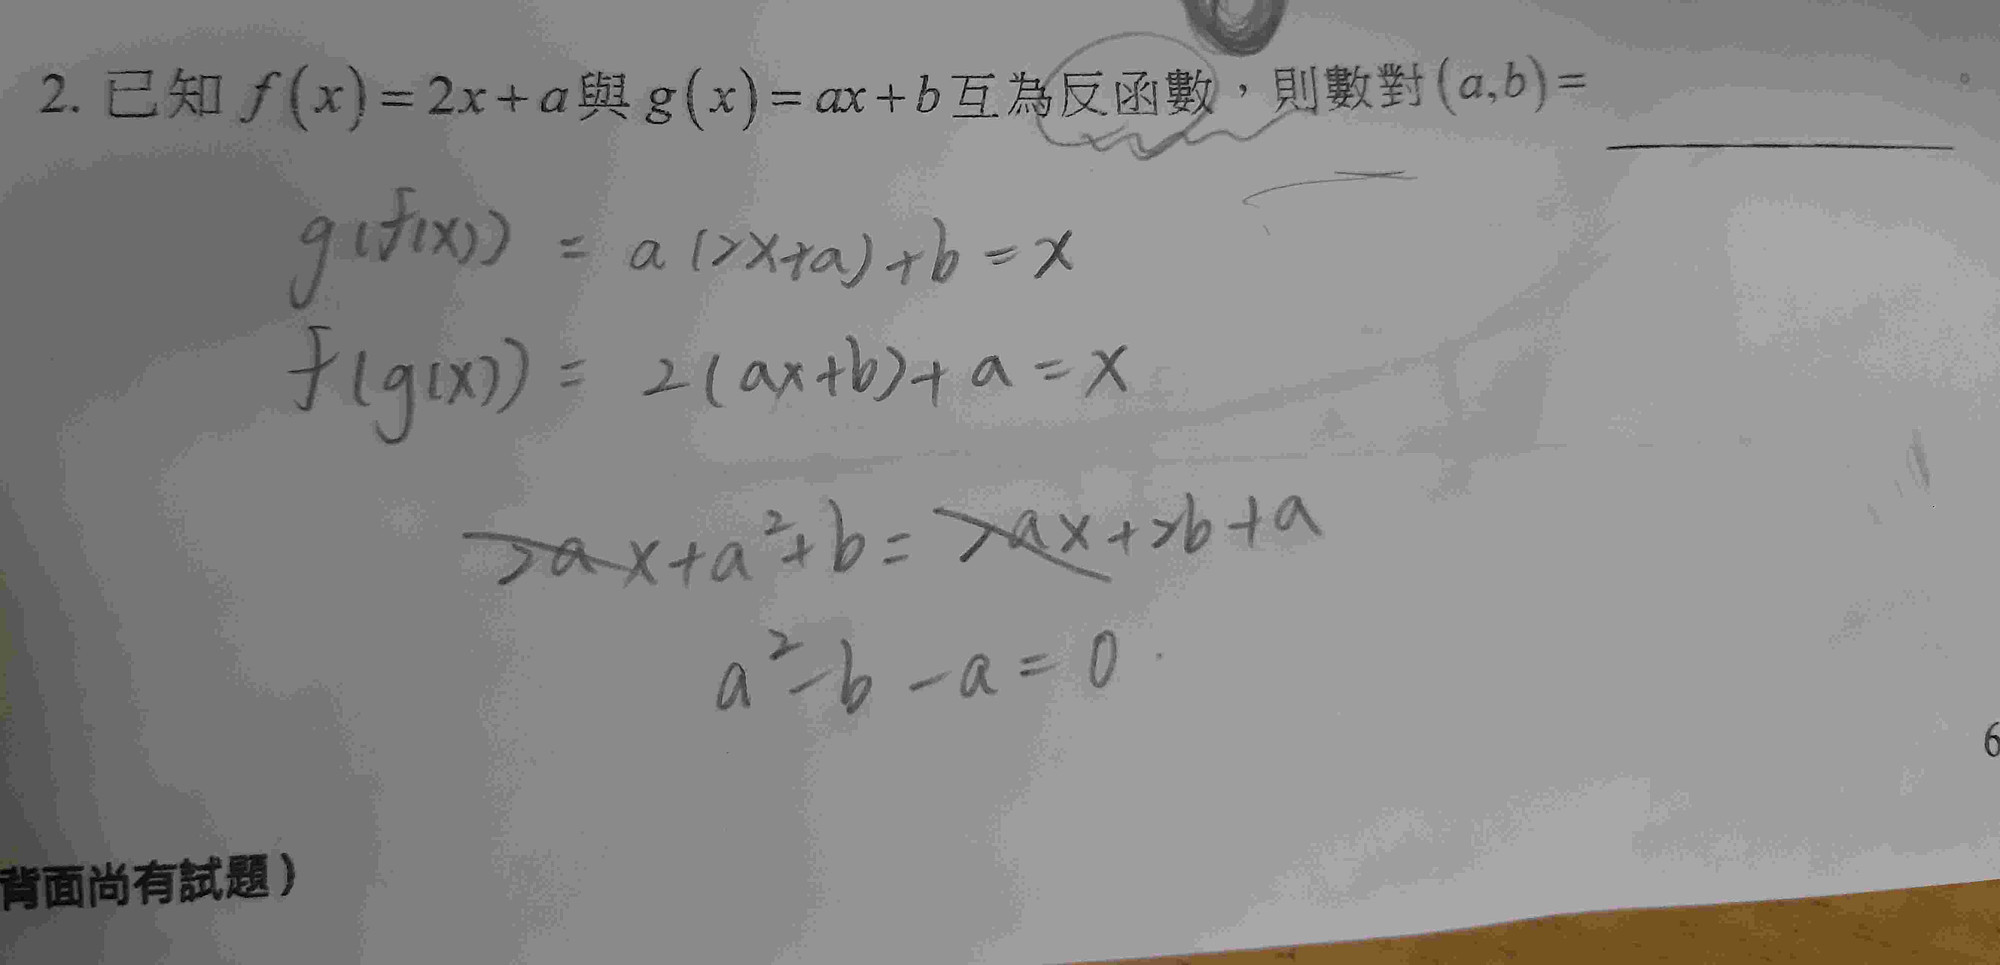 2. 已知 f(x)=2x+a與 g(x)=ax+b互為反函數，則數對(a,b)=________。
g(f(x)) = a(2x+a)+b=x
f(g(x)) = 2(ax+b)+a=x
2ax+a²+b=2ax+2b+a
a²-b-a=0
6
背面尚有試題）